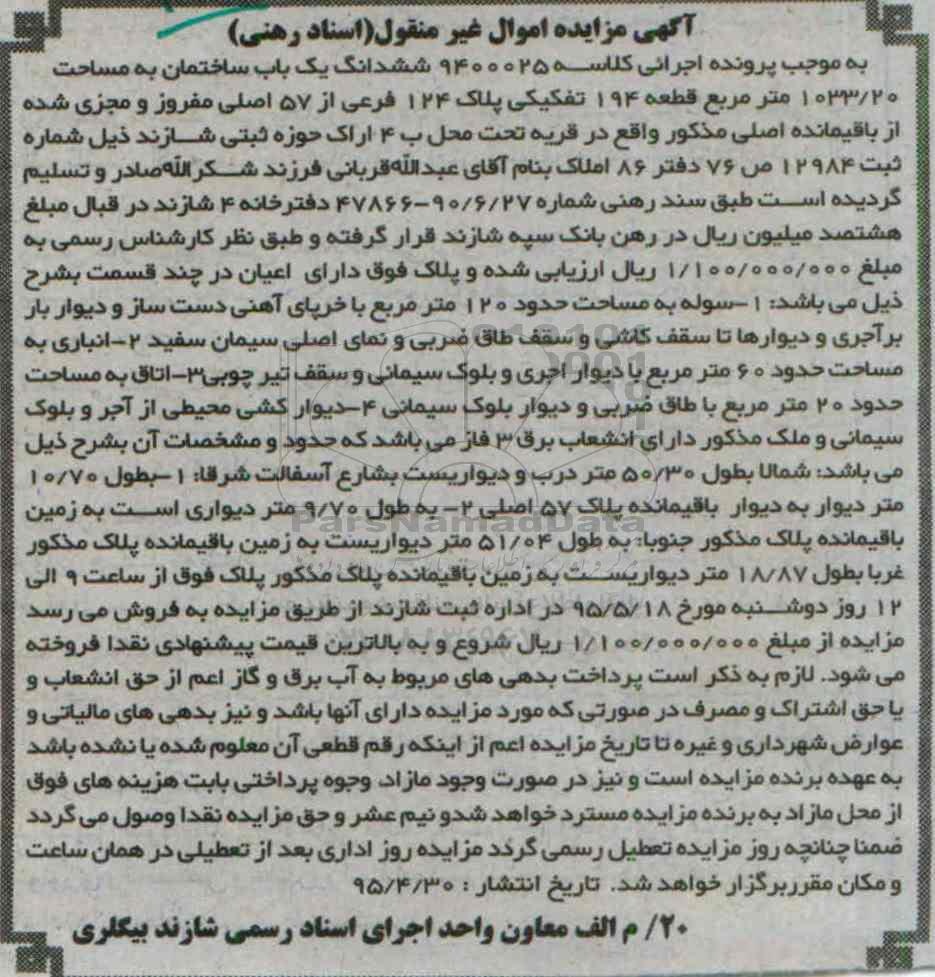 آگهی مزایده اموال غیر منقول(اسناد رهنی)
به موجب پرونده اجرائی کلاسه ۹۴۰۰۰۲۵ ششدانگ یک باب ساختمان به مساحت
۱۰۳۳/۲۰ متر مربع قطعه ۱۹۴ تفکیکی پلاک ۱۲۴ فرعی از ۵۷ اصلی مفروز و مجزی شده
از باقیمانده اصلی مذکور واقع در قریه تحت محل ب ۴ اراک حوزه ثبتی شازند ذیل شماره
ثبت ۱۲۹۸۴ ص ۷۶ دفتر ۸۶ املاک بنام آقای عبدالله قربانی فرزند شکرالله صادر و تسلیم
گردیده است طبق سند رهنی شماره ۴۷۸۶۶-۹۰/۶/۲۷ دفترخانه ۴ شازند در قبال مبلغ
هشتصد میلیون ریال در رهن بانک سپه شازند قرار گرفته و طبق نظر کارشناس رسمی به
مبلغ ۱/۱۰۰/۰۰۰/۰۰۰ ریال ارزیابی شده و پلاک فوق دارای اعیان در چند قسمت بشرح
ذیل می باشد: ۱-سوله به مساحت حدود ۱۲۰ متر مربع با خرپای آهنی دست ساز و دیوار بار
برآجری و دیوارها تا سقف کاشی و سقف طاق ضربی و نمای اصلی سیمان سفید ۲-انباری به
مساحت حدود ۶۰ متر مربع با دیوار اجری و بلوک سیمانی و سقف تیر چوبی۳-اتاق به مساحت
حدود ۲۰ متر مربع با طاق ضربی و دیوار بلوک سیمانی ۴-دیوار کشی محیطی از آجر و بلوک
سیمانی و ملک مذکور دارای انشعاب برق ۳ فاز می باشد که حدود و مشخصات آن بشرح ذیل
می باشد: شمالا بطول ۵۰/۳۰ متر درب و دیواریست بشارع آسفالت شرقا: ۱-بطول ۱۰/۷۰
متر دیوار به دیوار باقیمانده پلاک ۵۷ اصلی ۲- به طول ۹/۷۰ متر دیواری است به زمین
باقیمانده پلاک مذکور جنوبا: به طول ۵۱/۰۴ متر دیواریست به زمین باقیمانده پلاک مذکور
غربا بطول ۱۸/۸۷ متر دیواریست به زمین باقیمانده پلاک مذکور پلاک فوق از ساعت ۹ الی
۱۲ روز دوشنبه مورخ ۹۵/۵/۱۸ در اداره ثبت شازند از طریق مزایده به فروش می رسد
مزایده از مبلغ ۱/۱۰۰/۰۰۰/۰۰۰ ریال شروع و به بالاترین قیمت پیشنهادی نقدا فروخته
می شود. لازم به ذکر است پرداخت بدهی های مربوط به آب برق و گاز اعم از حق انشعاب و
یا حق اشتراک و مصرف در صورتی که مورد مزایده دارای آنها باشد و نیز بدهی های مالیاتی و
عوارض شهرداری و غیره تا تاریخ مزایده اعم از اینکه رقم قطعی آن معلوم شده یا نشده باشد
به عهده برنده مزایده است و نیز در صورت وجود مازاد، وجوه پرداختی بابت هزینه های فوق
از محل مازاد به برنده مزایده مسترد خواهد شدو نیم عشر و حق مزایده نقدا وصول می گردد
ضمنا چنانچه روز مزایده تعطیل رسمی گردد مزایده روز اداری بعد از تعطیلی در همان ساعت
و مکان مقرربرگزار خواهد شد. تاریخ انتشار : ۹۵/۴/۳۰
۲۰/ م الف معاون واحد اجرای اسناد رسمی شازند بیگلری
ParsNamadData